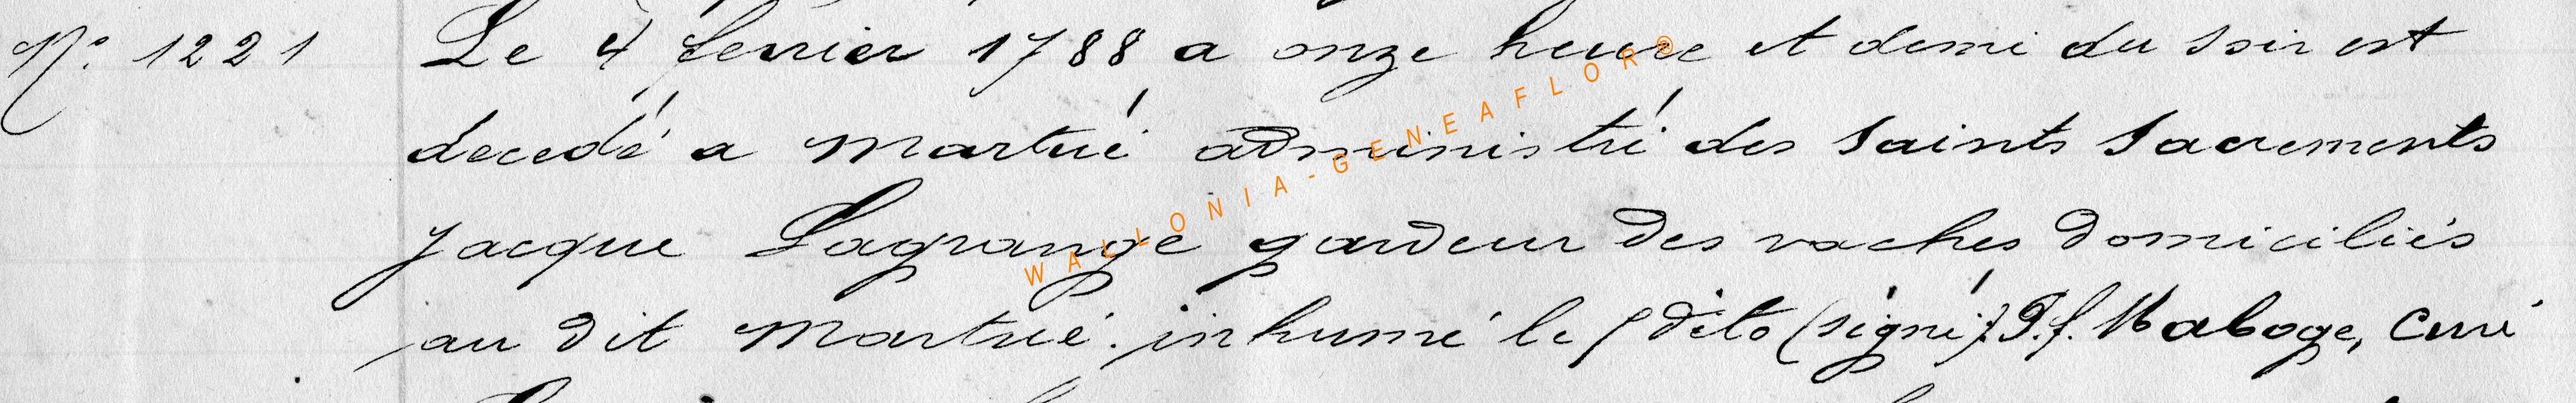 N.º 1221 Le 4 fevrier 1788 a onze heure et demi du soir est
decedé a Martué administré des Saints Sacrements
Jacque Lagrange gardeur des vaches domiciliés
au dit Martué. inhumé le dito (signé) P.f. Maboge, Curé
WALLONIA-GENEAFLOR®